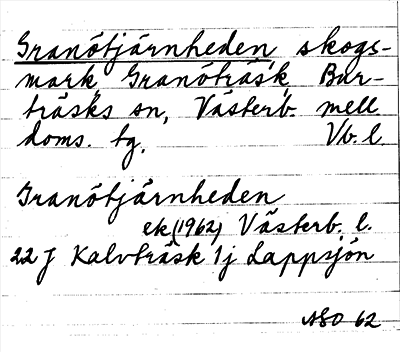 Granötjärnheden, skogs-
mark, Granöträsk, Bur-
träsks sn, Västerb. mell.
doms. tg. Vb. l.
Granötjärnheden
ek (1962) Västerb. l.
22 J Kalvträsk 1 j Lappsjön
ASO 62